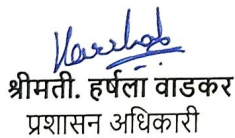 श्रीमती. हर्षला वाडकर
प्रशासन अधिकारी